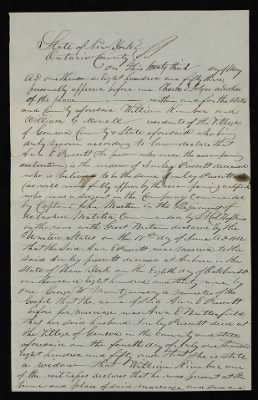 State of New York
Ontario County
on this twenty third day of May
A.D. one thousand eight hundred and fifty three
personally appeared before me Charles
of the place within and for the state
and County aforesaid William and
William residents of the Village
of Geneva County & State aforesaid who being
duly sworn according to law declare that
Ann E. Prescott the person who made the accompanying
declaration is the widow of Imley Prescott deceased
who is believed to be the same Imley Prescott
(as will more fully appear by the certificate
who was a in the Company Commanded
by Captain John in the Regiment of
Militia Commanded by
in the war with Great Britain declared by the
United States on the 18th day of June AD 1812
that the said Ann E Prescott was married to the
said Imley Prescott deceased at in the
State of New York on the Eighth day of
one thousand eight hundred and thirty by
one George Montgomery a minister of the
Gospel that the name of said Ann E Prescott
before her marriage was Ann E Butterfield
that her said husband Imley Prescott died at
the Village of Geneva in the County and State
aforesaid on the fourth day of July one thousand
eight hundred and fifty and that she is still
a widow that William one
of the declares that he was present at the
time and place of said marriage and